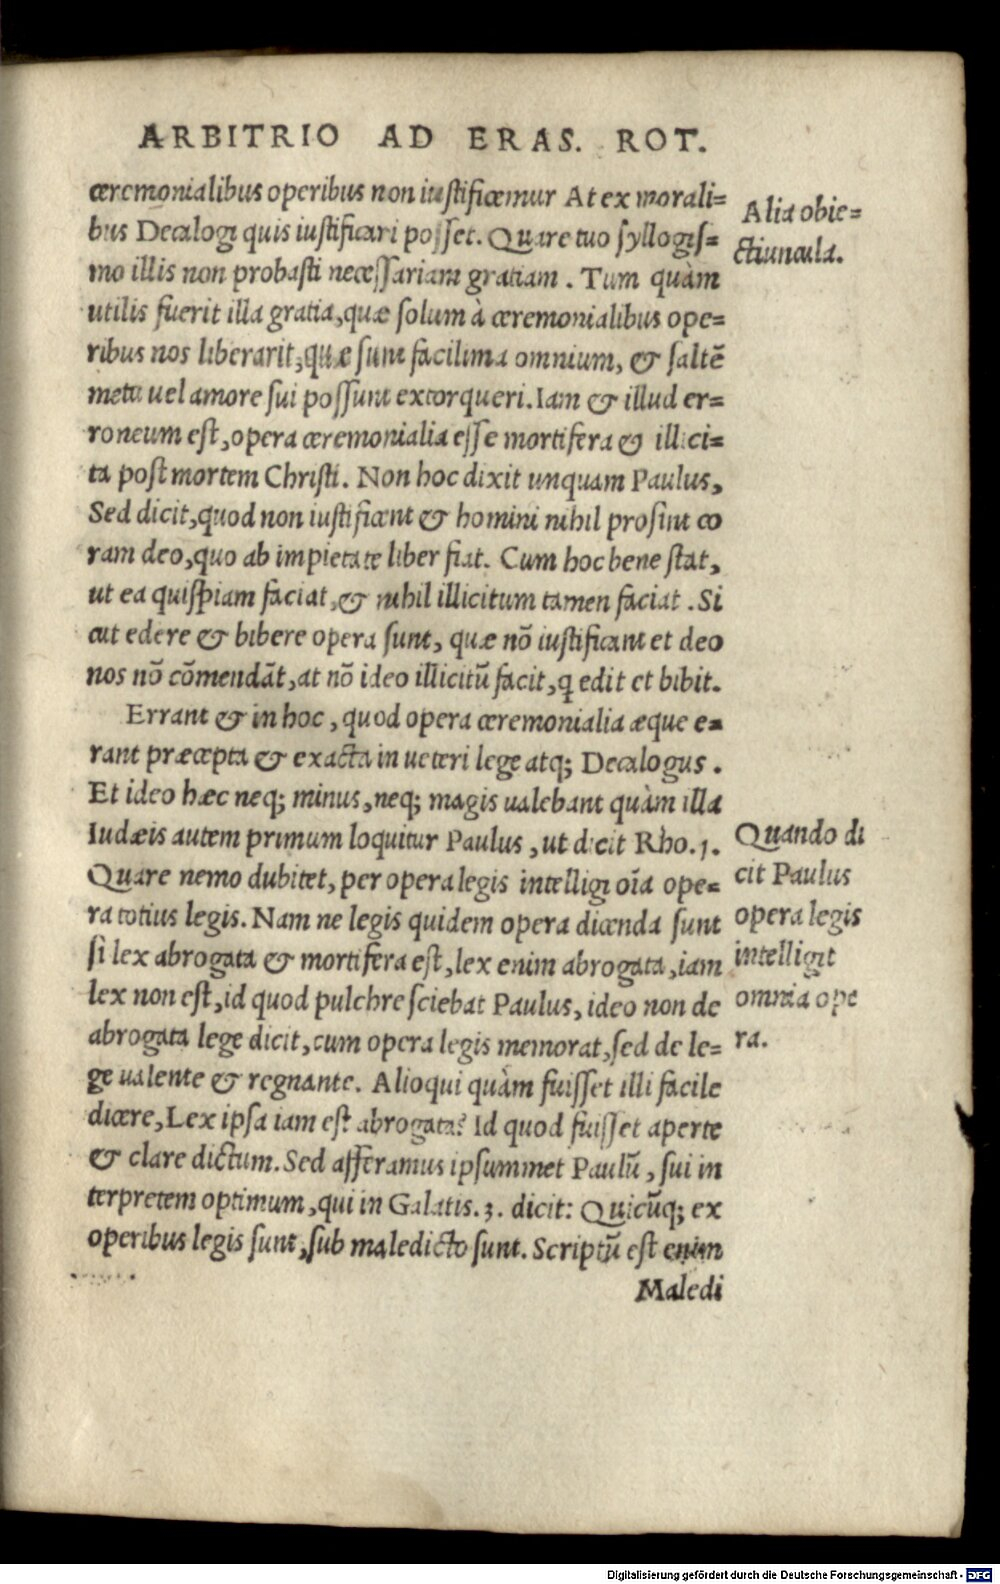 ARBITRIO AD ERAS. ROT.
ceremonialibus operibus non iustificemur At ex morali=
bus Decalogi quis iustificari posset. Quare tuo syllogis=
mo illis non probasti necessariam gratiam. Tum quàm
utilis fuerit illa gratia, quæ solum à ceremonialibus ope=
ribus nos liberarit, quæ sunt facilima omnium, & saltẽ
metu uel amore sui possunt extorqueri. Iam & illud er=
roneum est, opera ceremonialia esse mortifera & illici=
ta post mortem Christi. Non hoc dixit unquam Paulus,
Sed dicit, quod non iustificent & homini nihil prosint co
ram deo, quo ab impietate liber fiat. Cum hoc bene stat,
ut ea quispiam faciat, & nihil illicitum tamen faciat. Si
cut edere & bibere opera sunt, quæ nõ iustificant et deo
nos nõ cõmendãt, at nõ ideo illicitũ facit, q edit et bibit.
Errant & in hoc, quod opera ceremonialia æque e=
rant præcepta & exacta in ueteri lege atq; Decalogus.
Et ideo hæc neq; minus, neq; magis ualebant quàm illa
Iudæis autem primum loquitur Paulus, ut dicit Rho. 1.
Quare nemo dubitet, per opera legis intelligi oĩa ope=
ra totius legis. Nam ne legis quidem opera dicenda sunt
si lex abrogata & mortifera est, lex enim abrogata, iam
lex non est, id quod pulchre sciebat Paulus, ideo non de
abrogata lege dicit, cum opera legis memorat, sed de le=
ge ualente & regnante. Alioqui quàm fuisset illi facile
dicere, Lex ipsa iam est abrogata? Id quod fuisset aperte
& clare dictum. Sed afferamus ipsummet Paulũ, sui in
terpretem optimum, qui in Galatis. 3. dicit: Quicũq; ex
operibus legis sunt, sub maledicto sunt. Scriptũ est enim
Maledi
Alia obie=
ctiuncula.
Quando di
cit Paulus
opera legis
intelligit
omnia ope
ra.
Digitalisierung gefördert durch die Deutsche Forschungsgemeinschaft - DFG